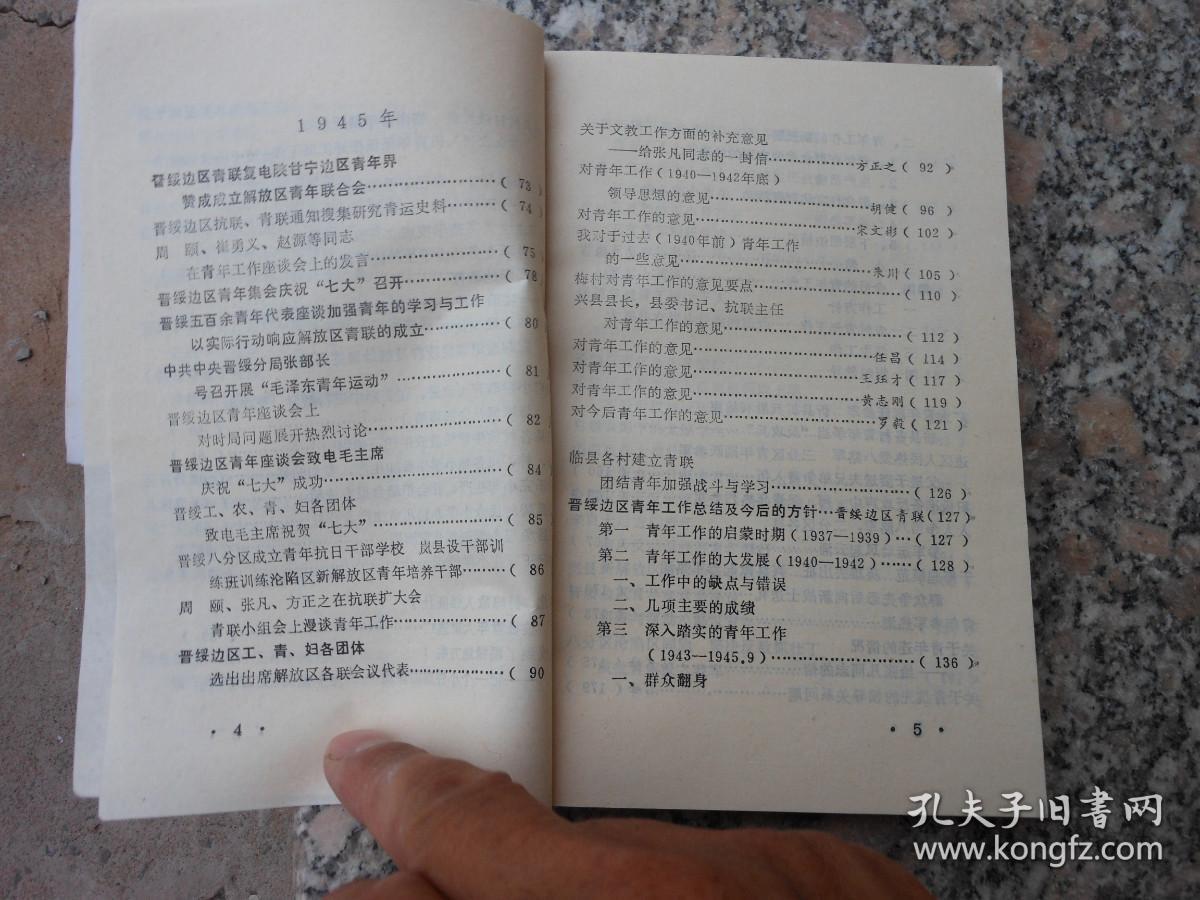 1945年
晋绥边区青联复电陕甘宁边区青年界
赞成成立解放区青年联合会……………………( 73 )
晋绥边区抗联、青联通知搜集研究青运史料………( 74 )
周　颐、崔勇义、赵源等同志
在青年工作座谈会上的发言……………………( 75 )
晋绥边区青年集会庆祝“七大”召开………………( 78 )
晋绥五百余青年代表座谈加强青年的学习与工作
以实际行动响应解放区青联的成立……………( 80 )
中共中央晋绥分局张部长
号召开展“毛泽东青年运动”……………………( 81 )
晋绥边区青年座谈会上
对时局问题展开热烈讨论………………………( 82 )
晋绥边区青年座谈会致电毛主席
庆祝“七大”成功…………………………………( 84 )
晋绥工、农、青、妇各团体
致电毛主席祝贺“七大”…………………………( 85 )
晋绥八分区成立青年抗日干部学校　岚县设干部训
练班训练沦陷区新解放区青年培养干部………( 86 )
周　颐、张凡、方正之在抗联扩大会
青联小组会上漫谈青年工作……………………( 87 )
晋绥边区工、青、妇各团体
选出出席解放区各联会议代表…………………( 90 )
· 4 ·
关于文教工作方面的补充意见
——给张凡同志的一封信………………方正之( 92 )
对青年工作(1940—1942年底)
领导思想的意见……………………………胡健( 96 )
对青年工作的意见………………………宋文彬( 102 )
我对于过去(1940年前)青年工作
的一些意见…………………………………朱川( 105 )
梅村对青年工作的意见要点……………………( 110 )
兴县县长，县委书记、抗联主任
对青年工作的意见………………………………( 112 )
对青年工作的意见…………………………任昌( 114 )
对青年工作的意见………………………王珏才( 117 )
对青年工作的意见………………………黄志刚( 119 )
对今后青年工作的意见……………………罗毅( 121 )
临县各村建立青联
团结青年加强战斗与学习………………………( 126 )
晋绥边区青年工作总结及今后的方针…晋绥边区青联(127)
第一　青年工作的启蒙时期(1937—1939)…(127)
第二　青年工作的大发展(1940—1942)……(128)
一、工作中的缺点与错误
二、几项主要的成绩
第三　深入踏实的青年工作
(1943—1945.9)…………………………( 136 )
一、群众翻身
· 5 ·
孔夫子旧書网
www.kongfz.com